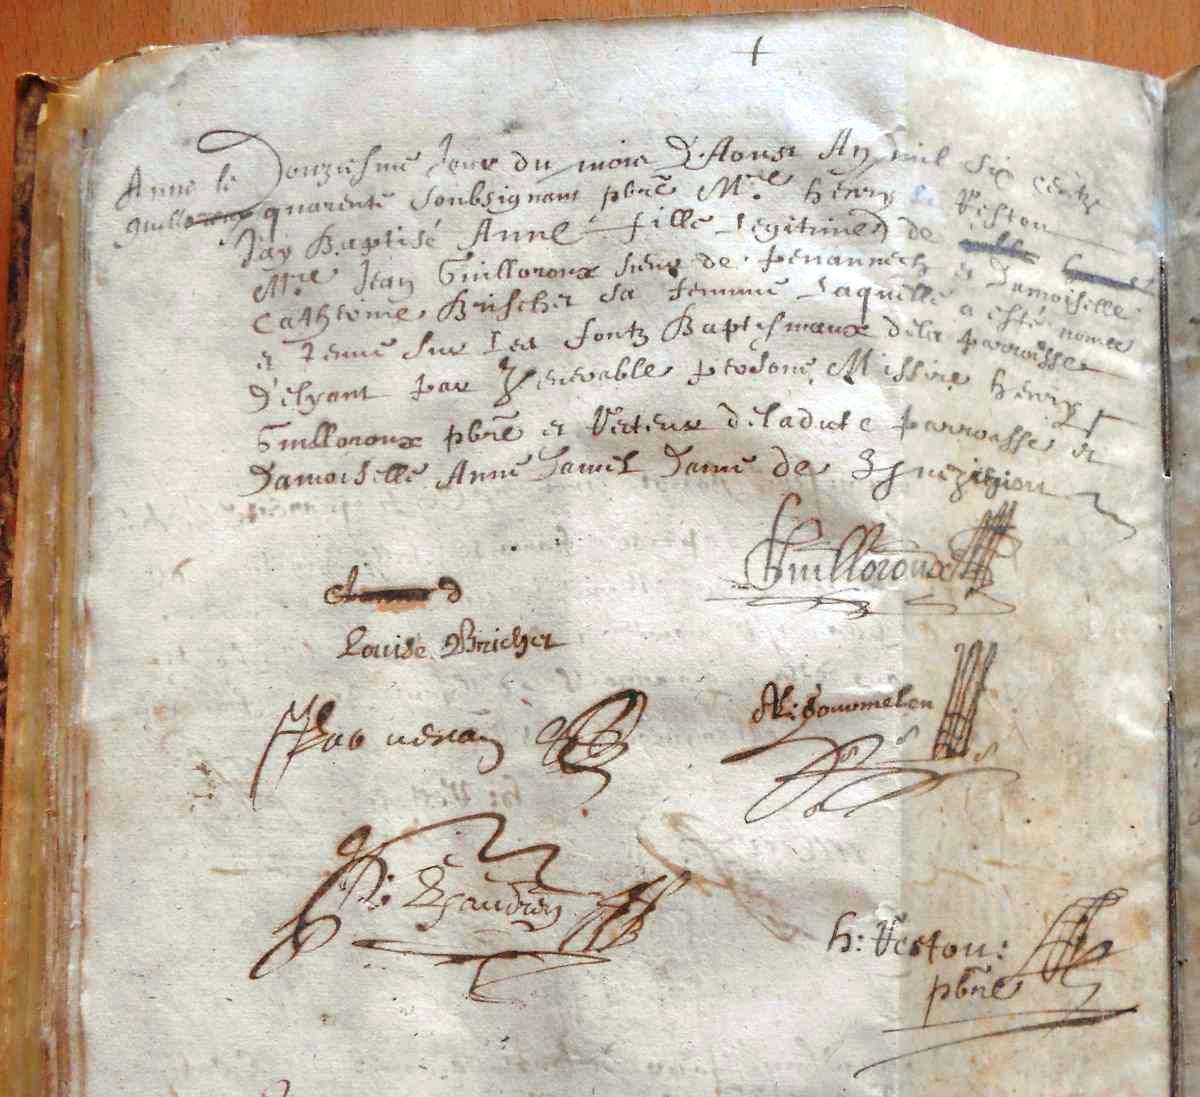 Anne
Guilloroux
le Douziesme Jour du mois D'Aoust An mil six cents
quarente soubsignant pbre Mre henry Veston
J'ay Baptisé Anne fille legitime de
Mre Jean Guilloroux sieur de penannech et Damoiselle
Cathérine Brischet sa femme laquelle a esté nomée
et tenue sur les fontz Baptismaux dela parroisse
D'elyant par Venerable persone Missire henry
Guilloroux pbre et Recteur deladicte parroesse et
Damoiselle Anne Dame de
Guilloroux
Louise Bricher
h: Veston:
pbre